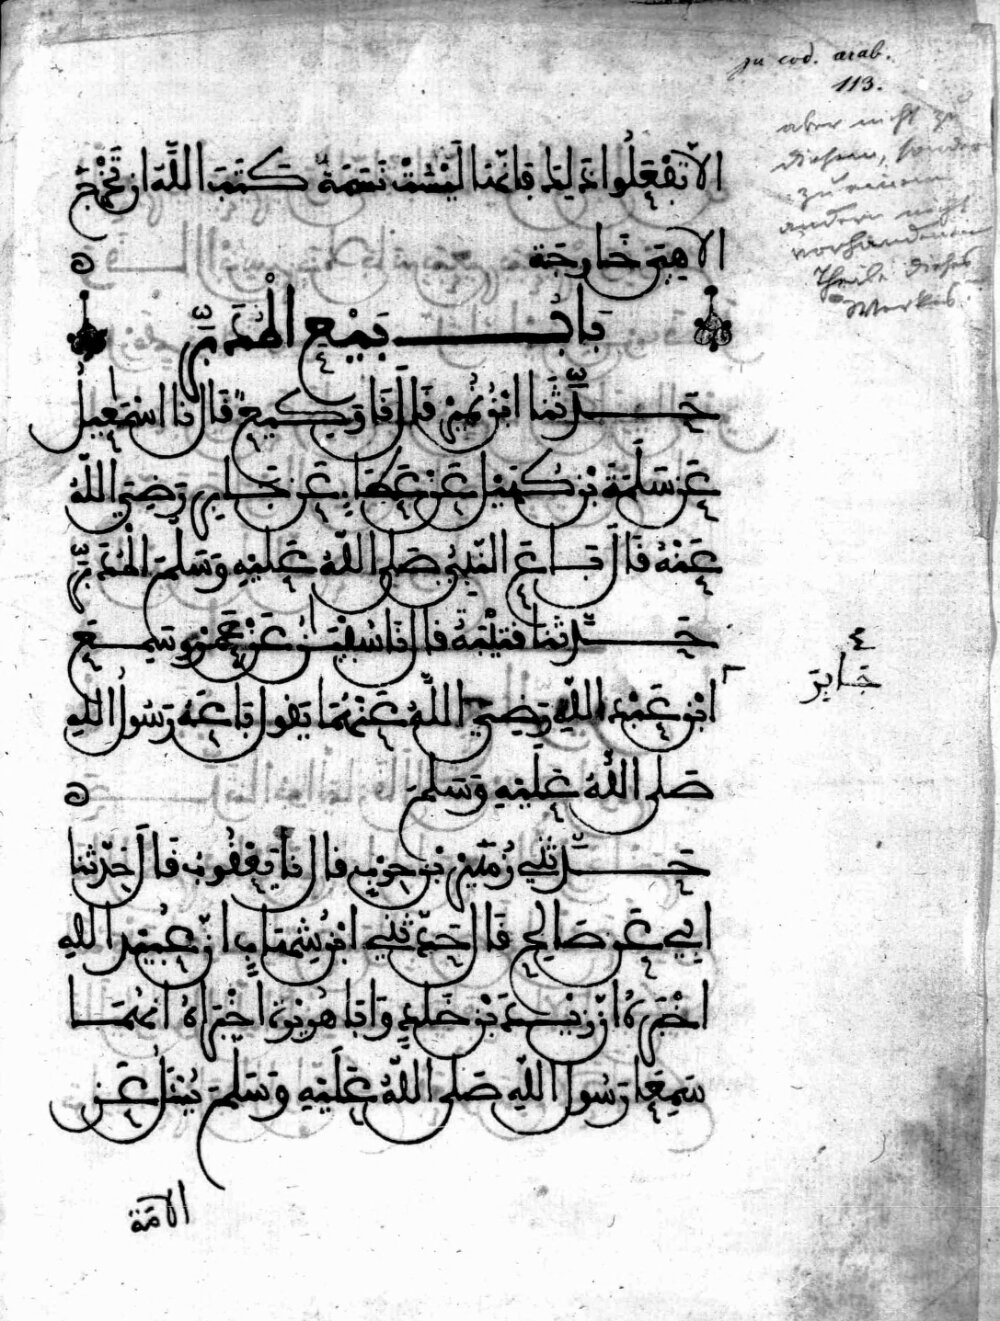 zu cod. arab.
113.
aber nicht zu
diesem, sondern
zu einem
andern nicht
vorhandenen
Theile dieses
Werkes.
الا تفعلوا ذلك فانها ليست نسمة كتب الله ان تخرج
الا هي خارجة
باب بيع المدبر
حدثنا ابن نمير قال نا وكيع قال نا اسمعيل
عن سلمة بن كهيل عن عطاء عن جابر رضي الله
عنه قال باع النبي صلى الله عليه وسلم المدبر
حدثنا قتيبة قال نا سفين عن عمرو سمع
جابر
ابن عبد الله رضي الله عنهما يقول باعه رسول الله
صلى الله عليه وسلم
حدثني زهير بن حرب قال نا يعقوب قال حدثنا
ابي عن صالح قال حدثني ابن شهاب ان عبيد الله
اخبره ان زيد بن خلد وابا هريرة اخبراه انهما
سمعا رسول الله صلى الله عليه وسلم يسئل عن
الامة